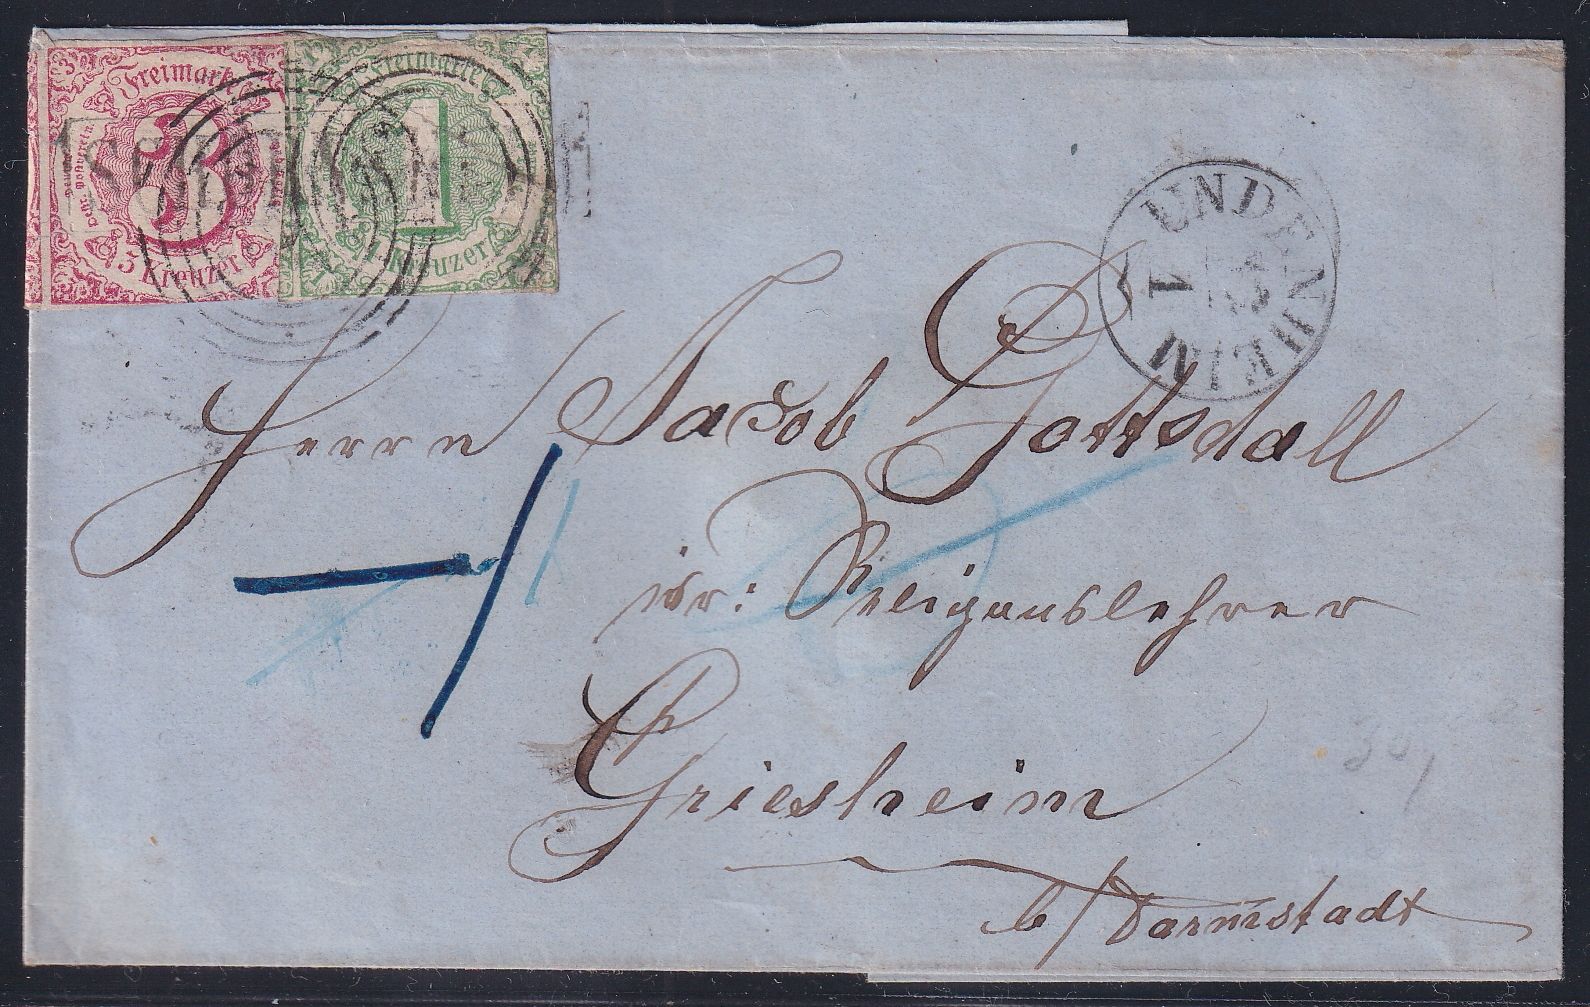 Freimarke
3
3 Kreuzer
Freimarke
1
1 Kreuzer
UNDENHEIM
Herrn Jacob Gottschall
isr: Religionslehrer
Griesheim
b/Darmstadt